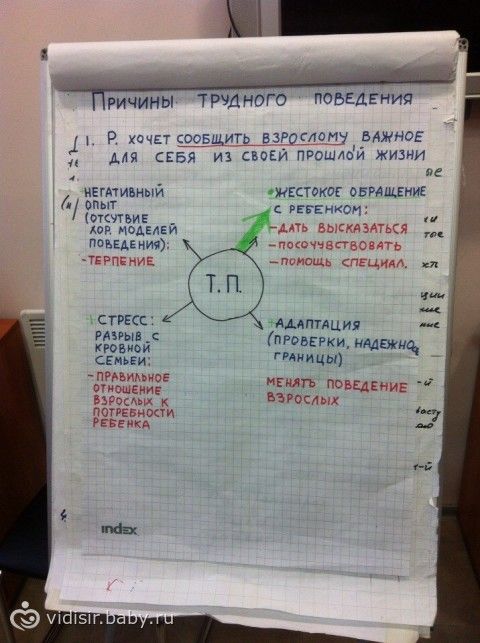 ПРИЧИНЫ ТРУДНОГО ПОВЕДЕНИЯ
1. Р. ХОЧЕТ СООБЩИТЬ ВЗРОСЛОМУ, ВАЖНОЕ
ДЛЯ СЕБЯ ИЗ СВОЕЙ ПРОШЛОЙ ЖИЗНИ
НЕГАТИВНЫЙ
ОПЫТ
(ОТСУТВИЕ
ХОР. МОДЕЛЕЙ
ПОВЕДЕНИЯ):
- ТЕРПЕНИЕ
ЖЕСТОКОЕ ОБРАЩЕНИЕ
С РЕБЕНКОМ:
- ДАТЬ ВЫСКАЗАТЬСЯ
- ПОСОЧУВСТВОВАТЬ
- ПОМОЩЬ СПЕЦИАЛ.
Т.П.
СТРЕСС:
РАЗРЫВ С
КРОВНОЙ
СЕМЬЕЙ:
- ПРАВИЛЬНОЕ
ОТНОШЕНИЕ
ВЗРОСЛЫХ К
ПОТРЕБНОСТИ
РЕБЕНКА
АДАПТАЦИЯ
(ПРОВЕРКИ, НАДЕЖНО
ГРАНИЦЫ)
МЕНЯТЬ ПОВЕДЕНИЕ
ВЗРОСЛЫХ
index
vidisir.baby.ru